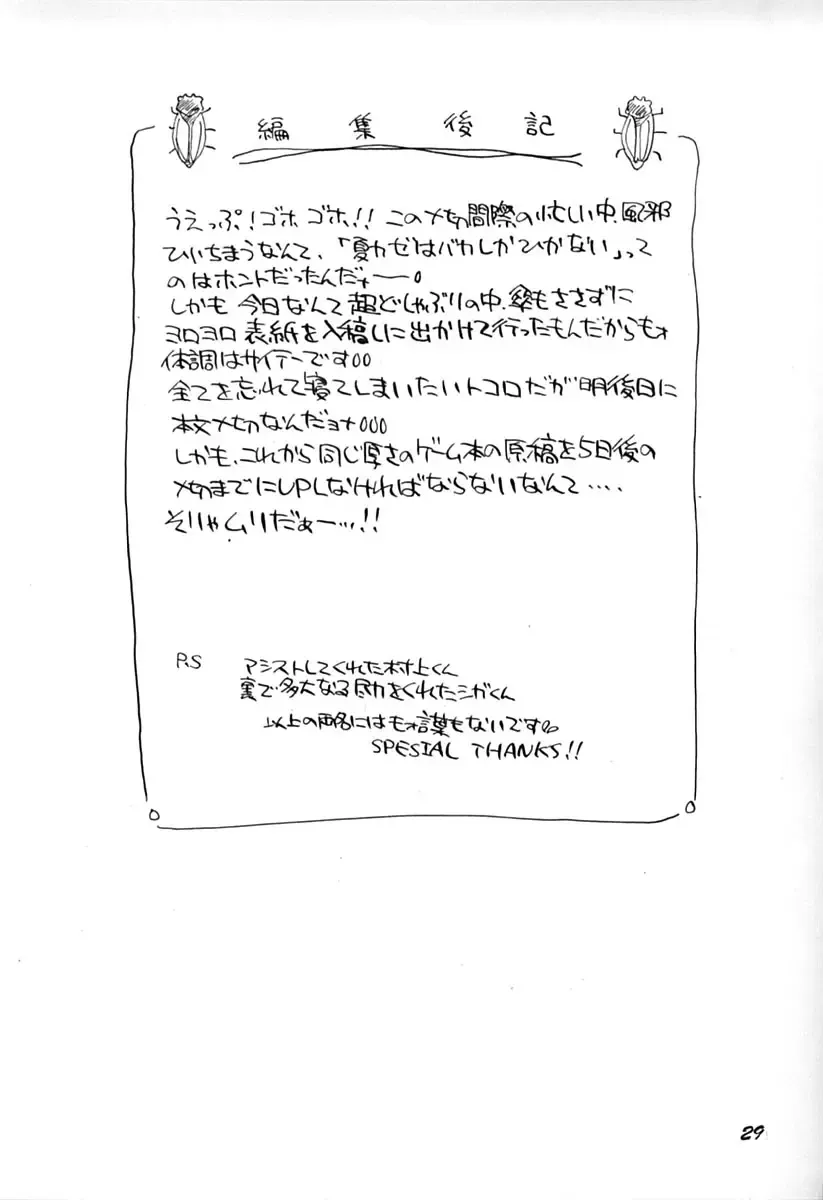 編集後記
うえっぷ!ゴホ ゴホ!! この〆切間際の忙しい中、風邪
ひいちまうなんて、「夏カゼはバカしかひかない」って
のはホントだったんだナー。
しかも 今日なんて 超どしゃぶりの中、傘もささずに
ヨロヨロ 表紙を入稿しに出かけて行ったもんだからもォ
体調はサイテーです。。
全てを忘れて寝てしまいたいトコロだが 明後日に
本文〆切なんだョナ。。。
しかも、これから同じ厚さのゲーム本の原稿を5日後の
〆切までにUPしなければならないなんて‥‥
そりゃムリだぁー…!!
P.S アシストしてくれた村上くん
裏で多大なる尽力をくれたシガくん
以上の両名にはもォ言葉もないです。。
SPESIAL THANKS!!
29